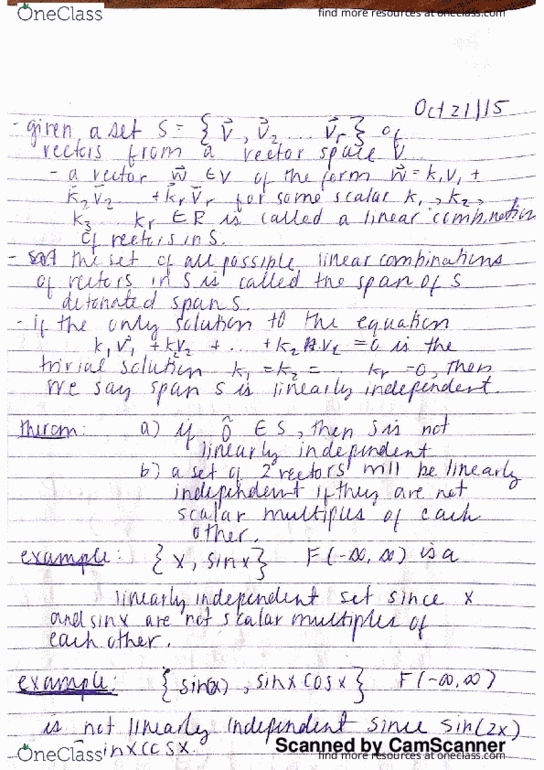 OneClass
find more resources at oneclass.com
Oct 21/15
- given a set S = { v⃗, v⃗₂ ... v⃗r } of
vectors from a vector space V
- a vector w⃗ ∈ V of the form w⃗ = k₁v₁ +
k₂v⃗₂ + krv⃗r for some scalar k₁, k₂,
k₃ kr ∈ R is called a linear combination
of vectors in S.
- the set of all possible linear combinations
of vectors in S is called the span of S
detonated span S.
- if the only solution to the equation
k₁v⃗₁ + kv₂ + ... + k₂ v₂ = 0 is the
trivial solution k₁ = k₂ = kr = 0, then
we say span S is linearly independent.
therom: a) if 0⃗ ∈ S, then S is not
linearly independent
b) a set of 2 vectors will be linearly
independent if they are not
scalar multiples of each
other.
example: { x, sinx } F(-∞, ∞) is a
linearly independent set since x
and sinx are not scalar multiples of
each other.
example: { sin(x), sinx cosx } F(-∞, ∞)
is not linearly independent since sin(2x)
inxcosx.
Scanned by CamScanner
OneClass
find more resources at oneclass.com